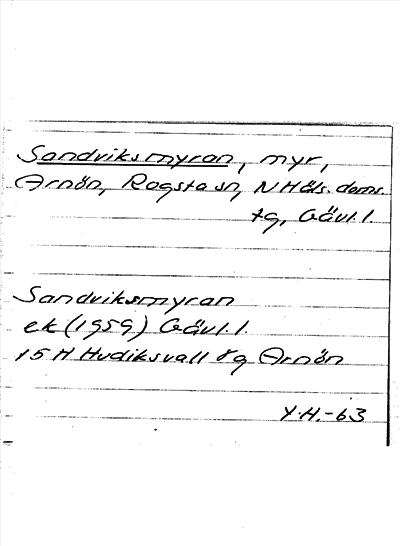 Sandviksmyran, myr,
Arnön, Rogsta sn, N Häls. doms.
tg, Gävl. l.
Sandviksmyran
ek (1959) Gävl. l.
15 H Hudiksvall Arnön
Y.H.-63